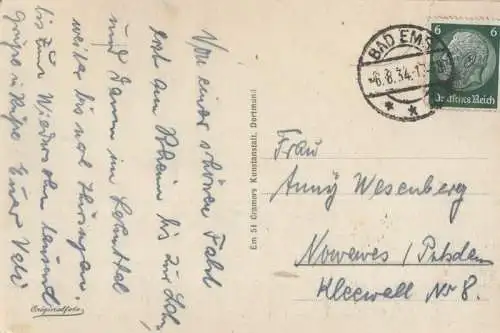 Von einer schönen Fahrt
erst am Rhein bis zur Lahn,
und dann im Lahntal
weiter bis nach Thüringen.
bis zum Wiedersehen tausend
Grüße u. Küsse Euer
Originalfoto
Em 51 Cramers Kunstanstalt, Dortmund
BAD EMS
6.8.34.
6 6
Deutsches Reich
Frau
Anny Wesenberg
Nowawes / Potsdam
Kleewall Nr 8.